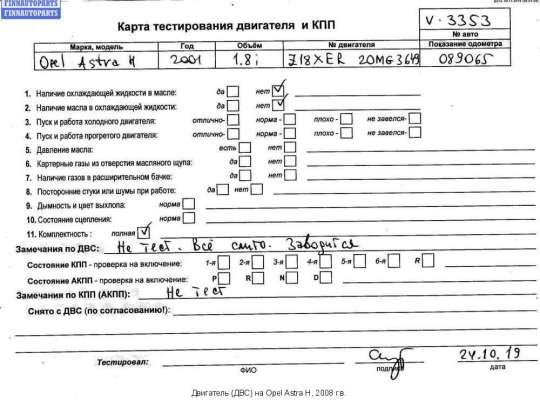 FINNAUTOPARTS
FINNAUTOPARTS
Карта тестирования двигателя и КПП
V-3353
№ авто
Марка, модель Год Объём № двигателя Показание одометра
Opel Astra H 2001 1.8i Z18XER 20MG3649 089065
1. Наличие охлаждающей жидкости в масле: да нет
2. Наличие масла в охлаждающей жидкости: да нет
3. Пуск и работа холодного двигателя: отлично- норма - плохо - не завелся-
4. Пуск и работа прогретого двигателя: отлично- норма - плохо - не завелся-
5. Давление масла: есть нет
6. Картерные газы из отверстия масляного щупа: да нет
7. Наличие газов в расширительном бачке: да нет
8. Посторонние стуки или шумы при работе: да нет
9. Дымность и цвет выхлопа: норма
10. Состояние сцепления: норма
11. Комплектность : полная
Замечания по ДВС: Не тест. Всё снято. Заводится
Состояние КПП - проверка на включение: 1-я 2-я 3-я 4-я 5-я 6-я R
Состояние АКПП - проверка на включение: P R N D
Замечания по КПП (АКПП): Не тест
Снято с ДВС (по согласованию!):
Тестировал: ФИО подпись 24.10.19 дата
Двигатель (ДВС) на Opel Astra H, 2008 г.в.